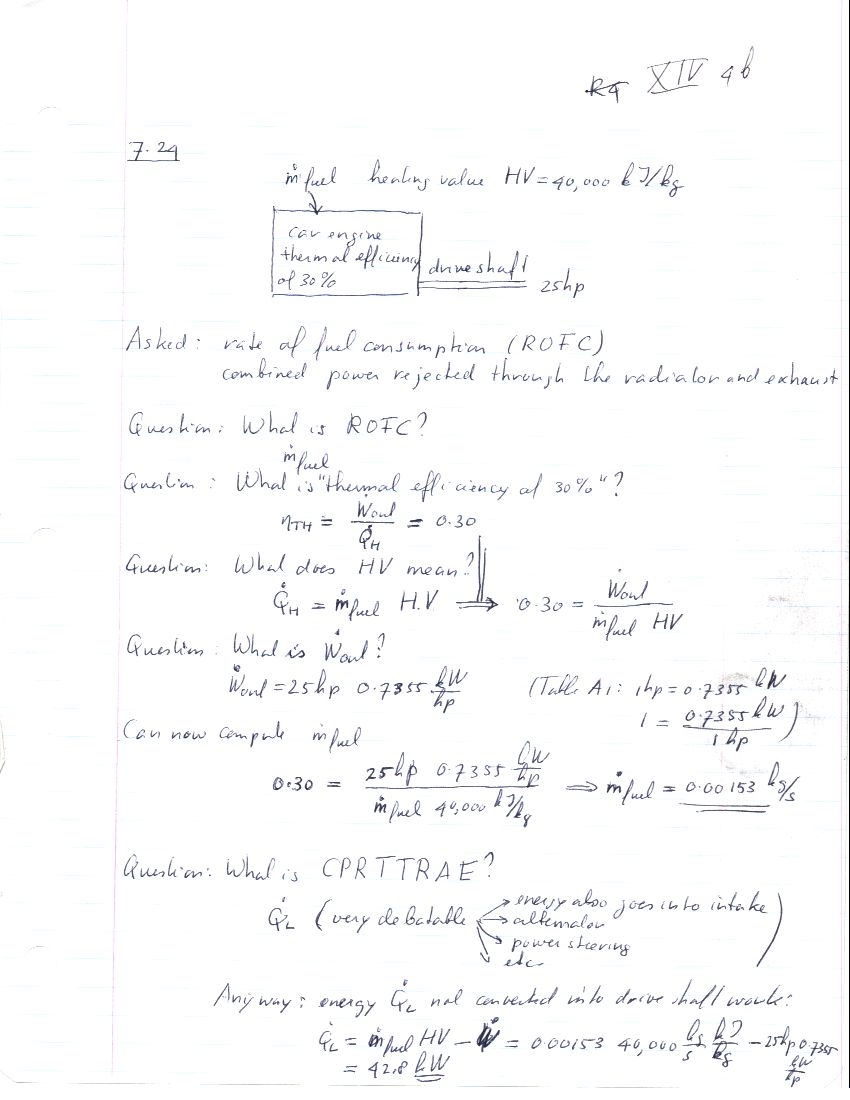 XIV 4b
7.24
ṁfuel heating value HV = 40,000 kJ/kg
car engine
thermal efficiency
of 30%
drive shaft
25hp
Asked: rate of fuel consumption (ROFC)
combined power rejected through the radiator and exhaust
Question: What is ROFC?
ṁfuel
Question: What is "thermal efficiency of 30%"?
ηTH = Ẇout / Q̇H = 0.30
Question: What does HV mean?
Q̇H = ṁfuel H.V ⟹ 0.30 = Ẇout / ṁfuel HV
Question: What is Ẇout?
Ẇout = 25hp 0.7355 kW/hp (Table A1: 1hp = 0.7355 kW
1 = 0.7355 kW / 1 hp)
Can now compute ṁfuel
0.30 = 25hp 0.7355 kW/hp / ṁfuel 40,000 kJ/kg ⟹ ṁfuel = 0.00153 kg/s
Question: What is CPRTTRAE?
Q̇L (very debatable → energy also goes into intake
→ alternator
→ power steering
→ etc)
Anyway: energy Q̇L not converted into drive shaft work:
Q̇L = ṁfuel HV − Ẇ = 0.00153 40,000 kg/s kJ/kg − 25hp 0.7355 kW/hp
= 42.8 kW